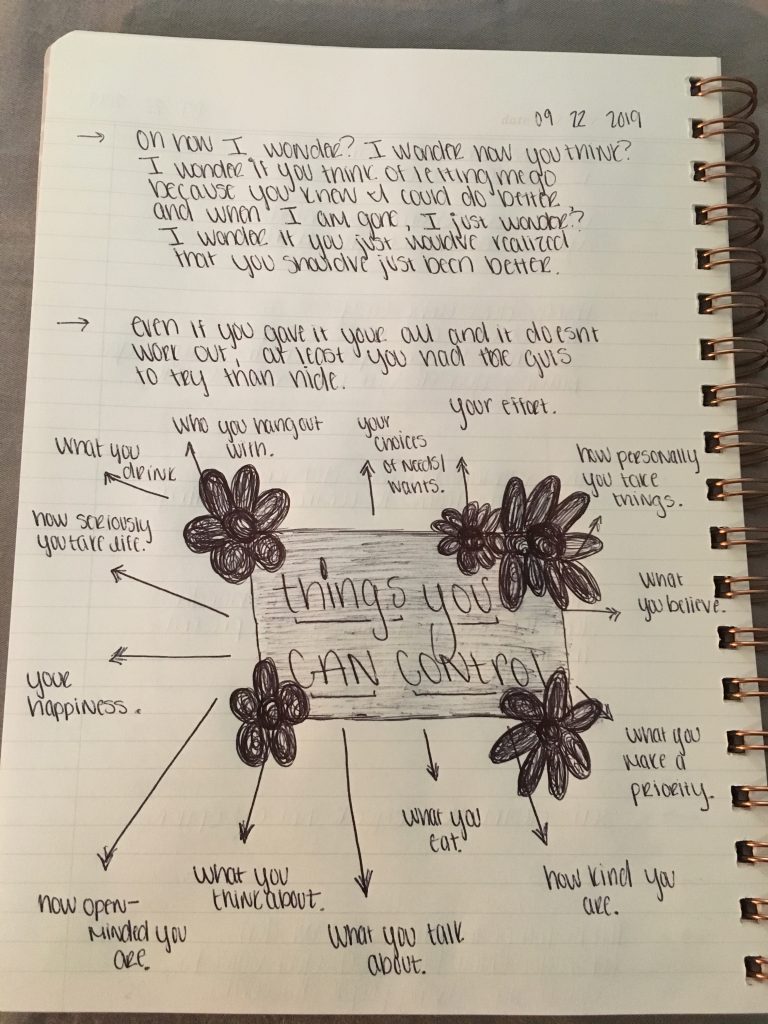 09 22 2019
→ oh how I wonder? I wonder how you think?
I wonder if you think of letting me go
because you knew I could do better,
and when I am gone, I just wonder?
I wonder if you just would've realized
that you should've just been better.
→ even if you gave it your all and it doesnt
work out, at least you had the guts
to try than hide.
your effort.
who you hangout
with.
your
choices
of needs/
wants.
what you
drink
how personally
you take
things.
how seriously
you take life.
things you
CAN control
what
you believe.
your
happiness.
what you
make a
priority.
what you
eat.
what you
think about.
how kind you
are.
how open-
minded you
are.
what you talk
about.